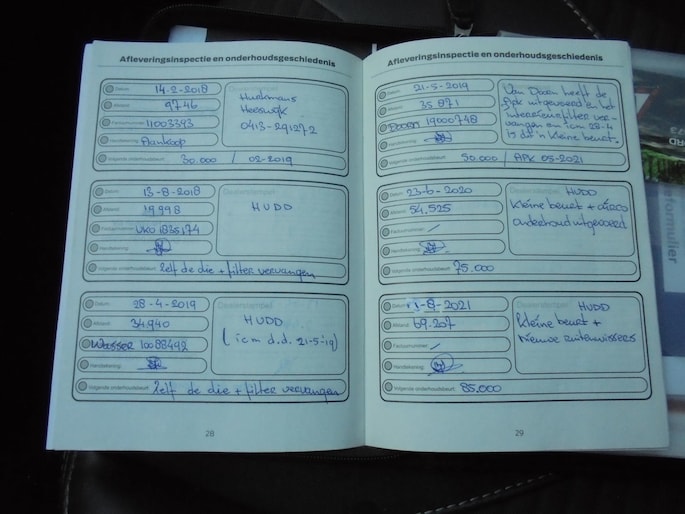 Afleveringsinspectie en onderhoudsgeschiedenis
Datum 14-2-2018
Afstand 9746
Factuurnummer 11003393
Handtekening Aankoop
Volgende onderhoudsbeurt 30.000 / 02-2019
Dealerstempel
Hurkmans
Heeswijk
0413-291272
Datum 13-8-2018
Afstand 19.998
Factuurnummer UKO 1835174
Handtekening
Volgende onderhoudsbeurt Zelf de olie + filter vervangen
Dealerstempel
HUDD
Datum 28-4-2019
Afstand 34.940
Wasser 10088492
Handtekening
Volgende onderhoudsbeurt Zelf de olie + filter vervangen
Dealerstempel
HUDD
(icm d.d. 21-5-'19)
28
Afleveringsinspectie en onderhoudsgeschiedenis
Datum 21-5-2019
Afstand 35.871
Doorn 19000748
Handtekening
Volgende onderhoudsbeurt 50.000 / APK 05-2021
Van Doorn heeft de
Apk uitgevoerd en het
interieurfilter ver-
vangen en icm 28-4
is dit 'n kleine beurt.
Datum 23-6-2020
Afstand 54.525
Factuurnummer /
Handtekening
Volgende onderhoudsbeurt 75.000
Dealerstempel HUDD
Kleine beurt + airco
onderhoud uitgevoerd
Datum 1-8-2021
Afstand 69.207
Factuurnummer /
Handtekening
Volgende onderhoudsbeurt 85.000
Dealerstempel HUDD
Kleine beurt +
nieuwe ruitenwissers
29
formulier